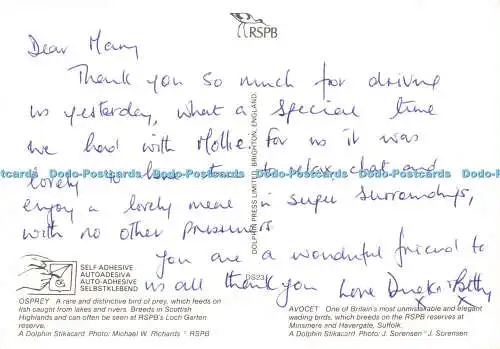 RSPB
Dear Mary
Thank you so much for driving
us yesterday, what a special time
we had with Mollie. For us it was
lovely to have time to relax, chat and
Dodo-Postcards Dodo-Postcards Dodo-Postcards Dodo-Postcards
enjoy a lovely meal in super surroundings,
with no other pressures.
You are a wonderful friend to
us all thank you Love Derek & Betty
x x
DOLPHIN PRESS LIMITED, BRIGHTON, ENGLAND.
DS23
SELF-ADHESIVE
AUTOADESIVA
AUTO-ADHESIVE
SELBSTKLEBEND
OSPREY A rare and distinctive bird of prey, which feeds on
fish caught from lakes and rivers. Breeds in Scottish
Highlands and can often be seen at RSPB's Loch Garten
reserve.
A Dolphin Stikacard Photo: Michael W. Richards ° RSPB
AVOCET One of Britain's most unmistakable and elegant
wading birds, which breeds on the RSPB reserves at
Minsmere and Havergate, Suffolk.
A Dolphin Stikacard Photo: J. Sorensen ° J. Sorensen